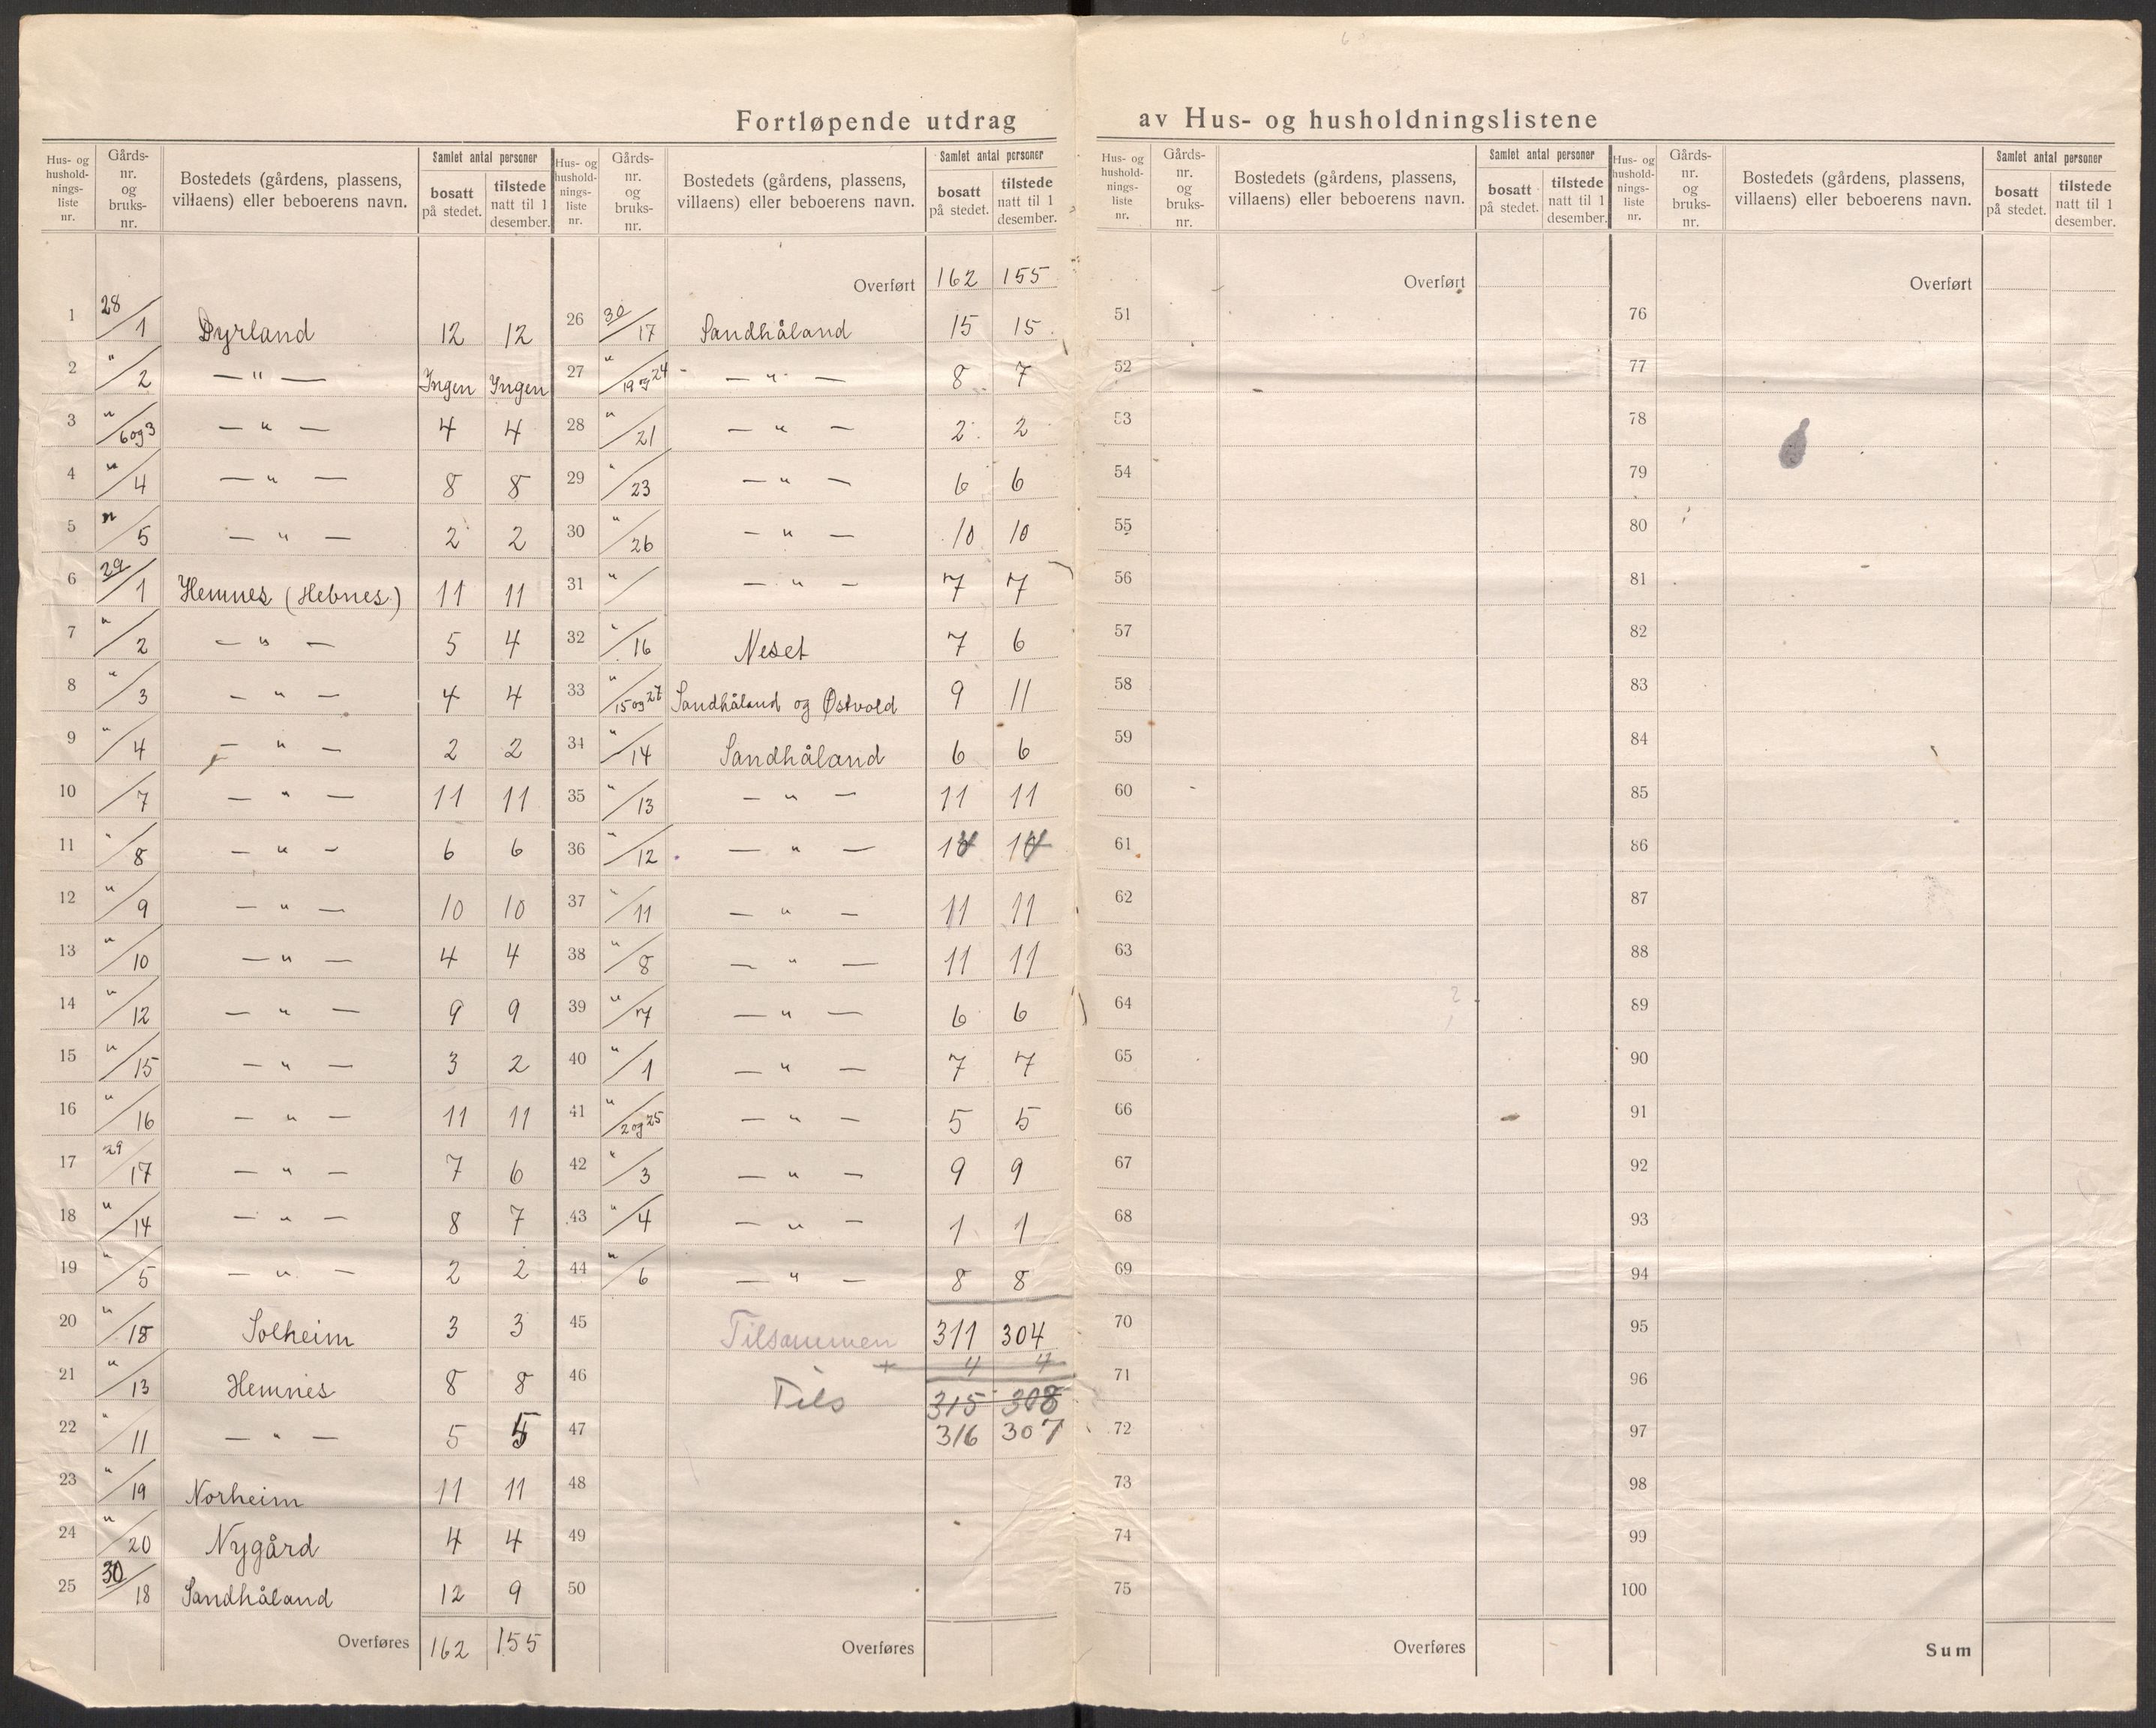 Fortløpende utdrag av Hus- og husholdningslistene
Hus- og hushold- nings- liste nr. | Gårds- nr. og bruks- nr. | Bostedets (gårdens, plassens, villaens) eller beboerens navn. | Samlet antal personer | bosatt på stedet. | tilstede natt til 1 desember.
1 28/1 Dyrland 12 12
2 "/2 — " — Ingen Ingen
3 "/6 og 3 — " — 4 4
4 "/4 — " — 8 8
5 "/5 — " — 2 2
6 29/1 Hemnes (Hebnes) 11 11
7 "/2 — " — 5 4
8 "/3 — " — 4 4
9 "/4 — " — 2 2
10 /7 — " — 11 11
11 "/8 — " — 6 6
12 "/9 — " — 10 10
13 "/10 — " — 4 4
14 "/12 — " — 9 9
15 "/15 — " — 3 2
16 "/16 — " — 11 11
17 29/17 — " — 7 6
18 "/14 — " — 8 7
19 "/5 — " — 2 2
20 "/18 Solheim 3 3
21 "/13 Hemnes 8 8
22 "/11 — " — 5 5
23 "/19 Norheim 11 11
24 "/20 Nygård 4 4
25 30/18 Sandhåland 12 9
Overføres 162 155
Hus- og hushold- nings- liste nr. | Gårds- nr. og bruks- nr. | Bostedets (gårdens, plassens, villaens) eller beboerens navn. | Samlet antal personer | bosatt på stedet. | tilstede natt til 1 desember.
Overført 162 155
26 30/17 Sandhåland 15 15
27 "/19 og 24 — " — 8 7
28 "/21 — " — 2 2
29 "/23 — " — 6 6
30 "/26 — " — 10 10
31 "/ — " — 7 7
32 "/16 Neset 7 6
33 "/15 og 27 Sandhåland og Østvold 9 11
34 "/14 Sandhåland 6 6
35 "/13 — " — 11 11
36 "/12 — " —
37 "/11 — " — 11 11
38 "/8 — " — 11 11
39 "/7 — " — 6 6
40 "/1 — " — 7 7
41 "/2 og 25 — " — 5 5
42 "/3 — " — 9 9
43 "/4 — " — 1 1
44 "/6 — " — 8 8
45 Tilsammen 311 304
+ 4 4
46 Tils 315 308
47 316 307
48
49
50
Overføres
Hus- og hushold- nings- liste nr. | Gårds- nr. og bruks- nr. | Bostedets (gårdens, plassens, villaens) eller beboerens navn. | Samlet antal personer | bosatt på stedet. | tilstede natt til 1 desember.
Overført
51
52
53
54
55
56
57
58
59
60
61
62
63
64
65
66
67
68
69
70
71
72
73
74
75
Overføres
Hus- og hushold- nings- liste nr. | Gårds- nr. og bruks- nr. | Bostedets (gårdens, plassens, villaens) eller beboerens navn. | Samlet antal personer | bosatt på stedet. | tilstede natt til 1 desember.
Overført
76
77
78
79
80
81
82
83
84
85
86
87
88
89
90
91
92
93
94
95
96
97
98
99
100
Sum